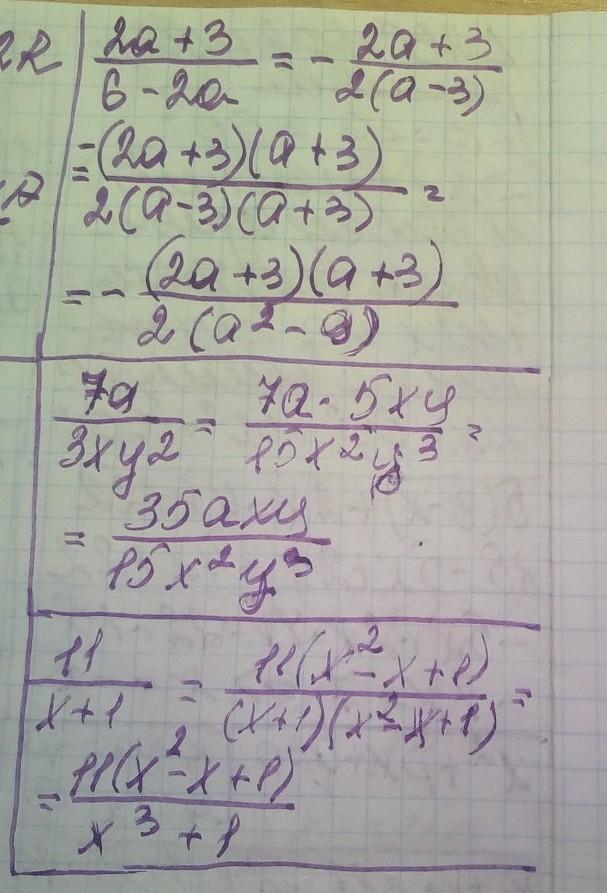 2a + 3 / 6 - 2a = - 2a + 3 / 2(a - 3)
= -(2a + 3)(a + 3) / 2(a - 3)(a + 3) =
= - (2a + 3)(a + 3) / 2(a² - 9)
7a / 3xy2 = 7a · 5xy / 15x²y³ =
= 35axy / 15x²y³
11 / x + 1 = 11(x² - x + 1) / (x + 1)(x² - x + 1) =
= 11(x² - x + 1) / x³ + 1